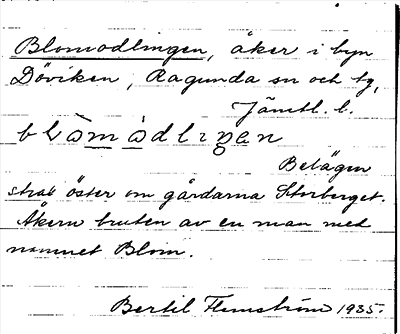 Blomodlingen, åker i byn
Döviken, Ragunda sn och tg,
Jämtl. l.
blòmàdlıŋen
Belägen
strax öster om gårdarna Storberget.
Åkern bruten av en man med
namnet Blom.
Bertil Flemström 1935.